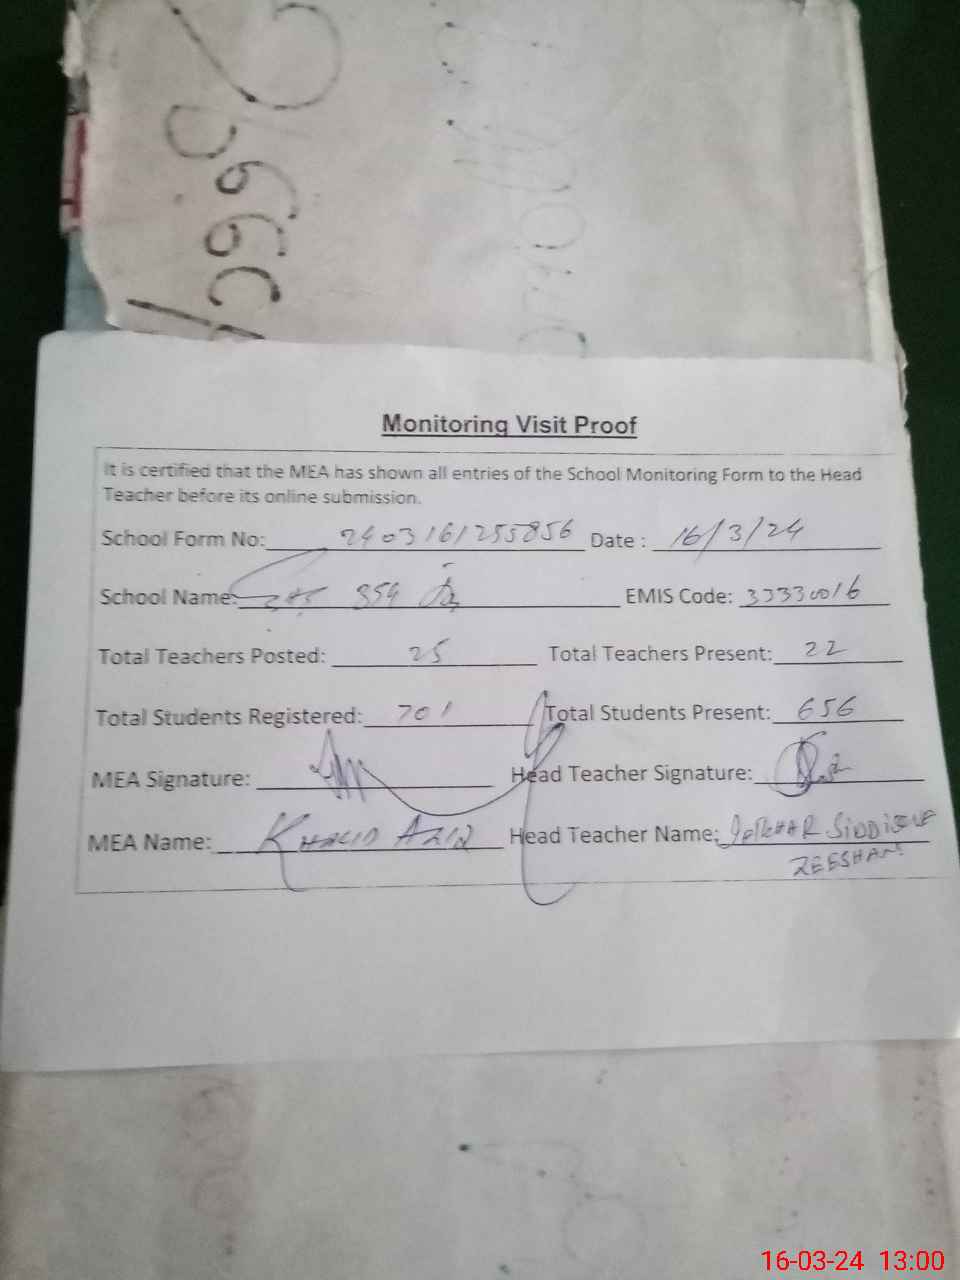 Monitoring Visit Proof
It is certified that the MEA has shown all entries of the School Monitoring Form to the Head
Teacher before its online submission.
School Form No: 2403161255856 Date : 16/3/24
School Name: 354 EMIS Code: 33330016
Total Teachers Posted: 25 Total Teachers Present: 22
Total Students Registered: 701 Total Students Present: 656
MEA Signature: Head Teacher Signature:
MEA Name: KHALID AZIZ Head Teacher Name: IFTKHAR SIDDIQUE
ZEESHAN
16-03-24 13:00